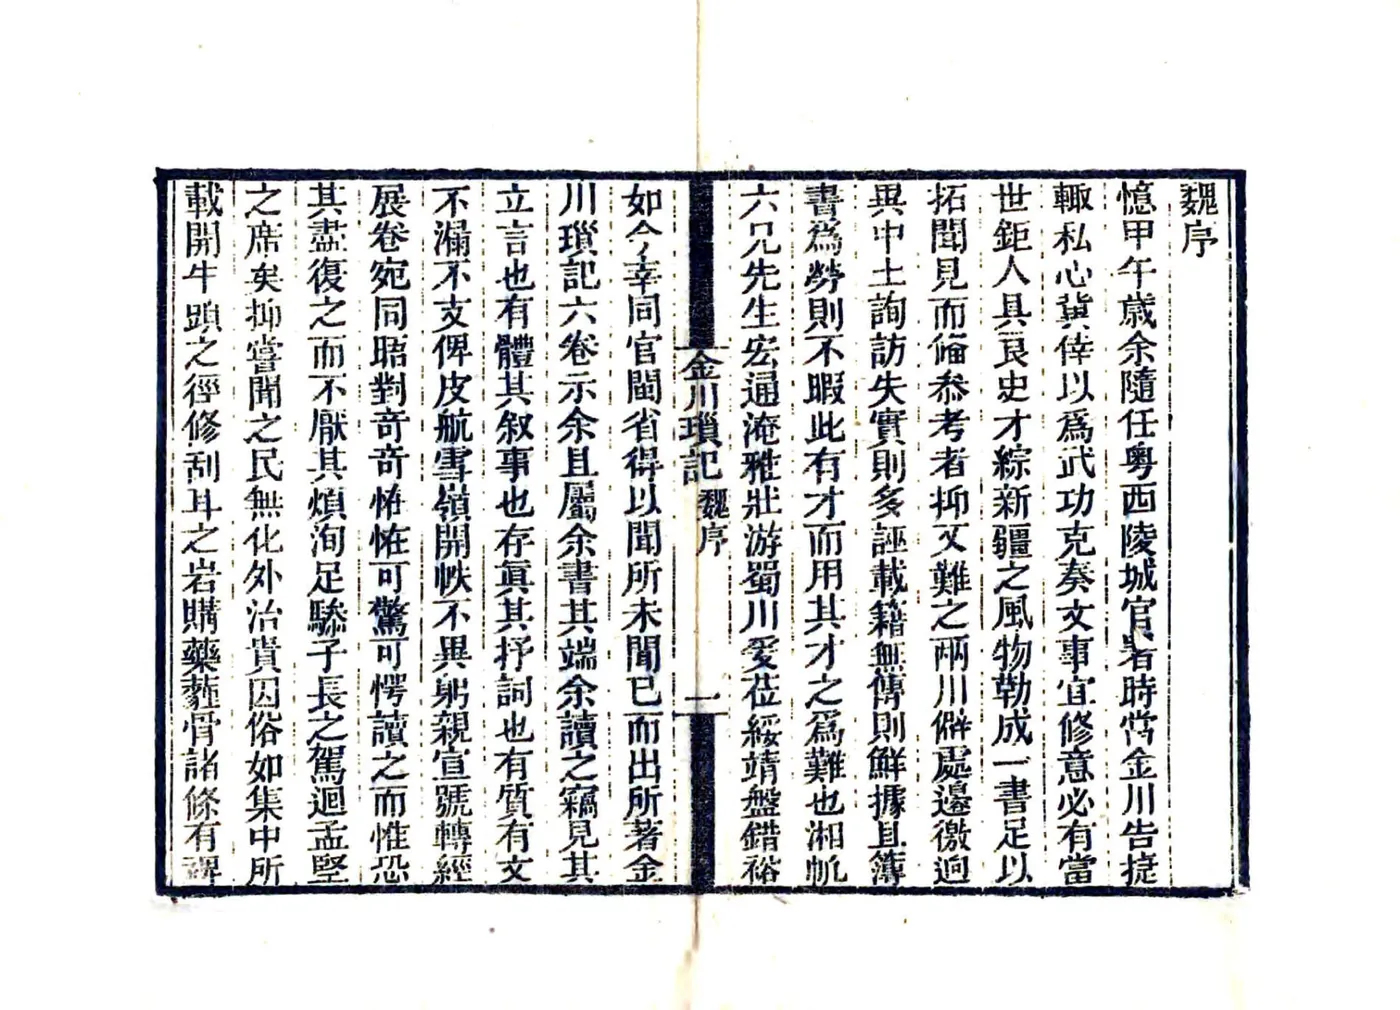 魏序
憶甲午歲余隨任粵西陵城官署時當金川告捷
輙私心冀倖以爲武功克奏文事宜修意必有當
世鉅人具良史才綜新疆之風物勒成一書足以
拓聞見而僃叅考者抑又難之兩川僻處邊徼迥
異中土詢訪失實則多誣載籍無傳則鮮據且簿
書爲勞則不暇此有才而用其才之爲難也湘帆
六兄先生宏通淹雅壯游蜀川爰莅綏靖盤錯裕
金川瑣記 魏序 一
如今幸同官閩省得以聞所未聞已而出所著金
川瑣記六卷示余且屬余書其端余讀之竊見其
立言也有體其叙事也存眞其抒詞也有質有文
不漏不支俾皮航雪嶺開帙不異躬親宣號轉經
展卷宛同晤對奇奇恠恠可驚可愕讀之而惟恐
其盡復之而不厭其煩洵足驂子長之駕迴孟堅
之席矣抑嘗聞之民無化外治貴因俗如集中所
載開牛蹟之徑修刮耳之岩購藥薶骨諸條有裨